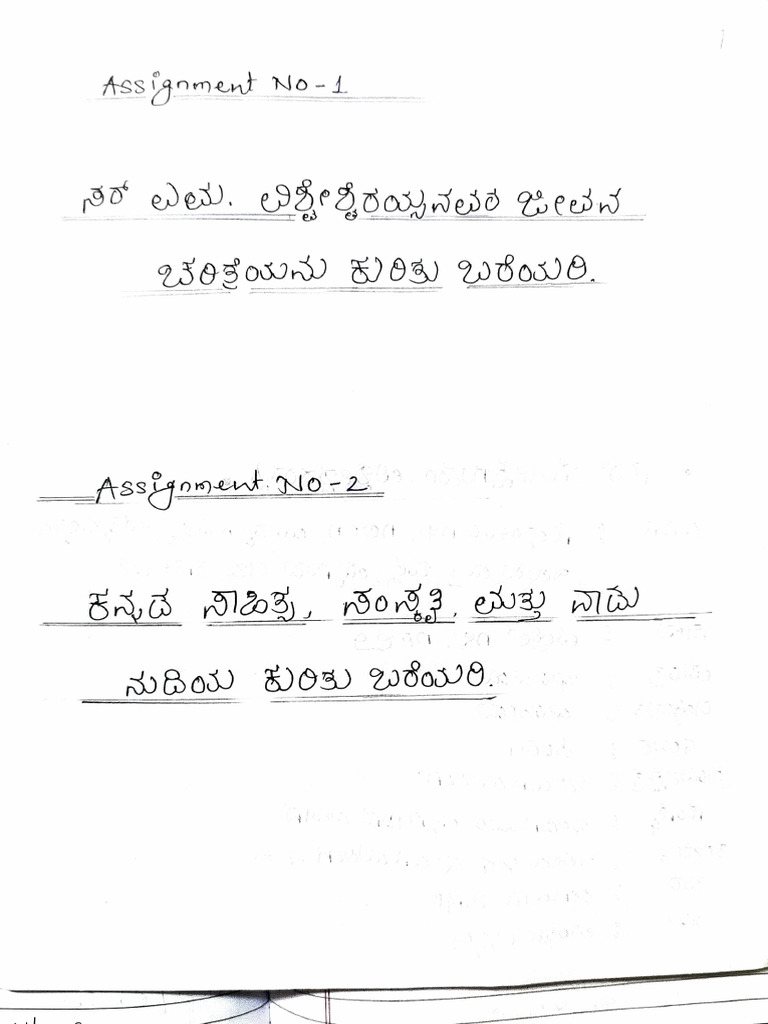 Assignment No-1
ಸರ್ ಎಮ. ವಿಶ್ವೇಶ್ವರಯ್ಯನವರ ಜೀವನ
ಚರಿತ್ರೆಯನು ಕುರಿತು ಬರೆಯರಿ.
Assignment No-2
ಕನ್ನಡ ಸಾಹಿತ್ಯ, ಸಂಸ್ಕೃತಿ, ಮತ್ತು ನಾಡು
ನುಡಿಯ ಕುರಿತು ಬರೆಯರಿ.